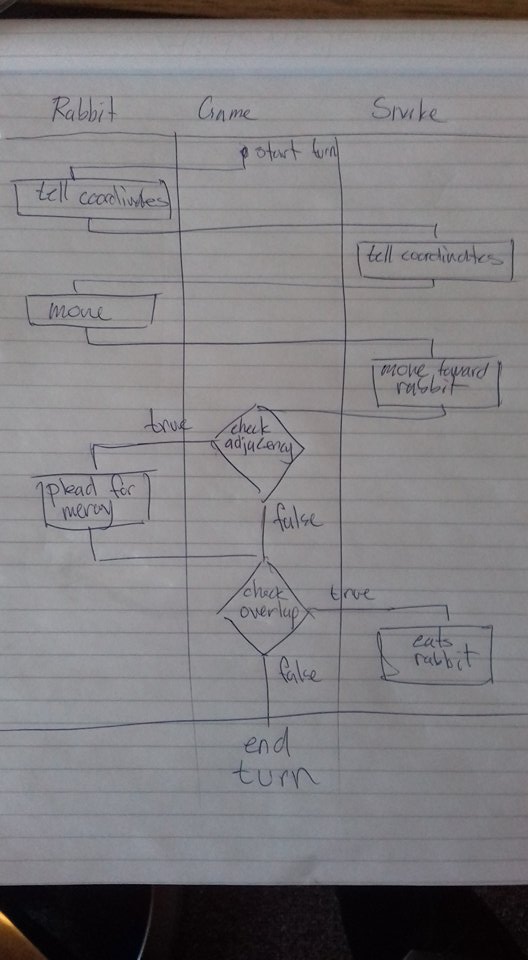 Rabbit Game Snake
start turn
tell coordinates
tell coordinates
move
move toward
rabbit
true
check
adjacency
plead for
mercy
false
check
overlap
true
eats
rabbit
false
end
turn